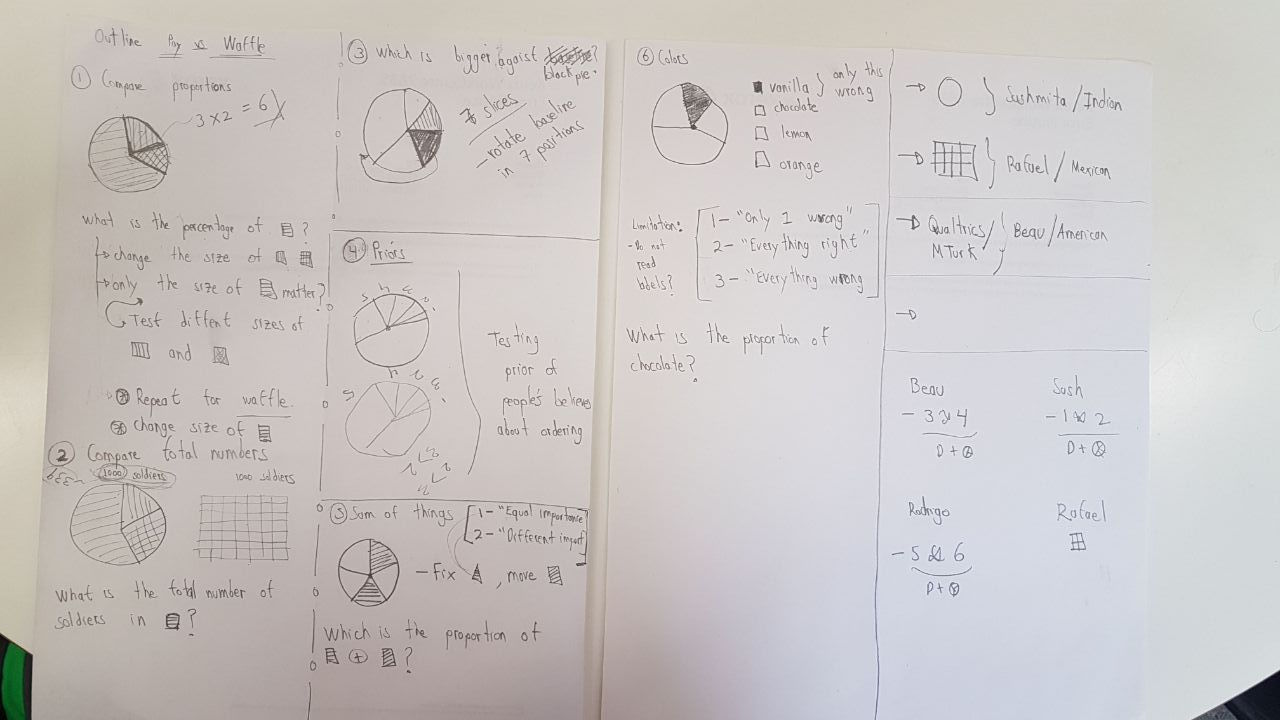 Outline Pay vs Waffle
① Compare proportions
3 x 2 = 6
what is the percentage of ?
change the size of
only the size of matter?
Test diffent sizes of
and
Repeat for waffle.
change size of
② Compare total numbers
1000 soldiers
1000 soldiers
What is the total number of
soldiers in ?
③ which is bigger agoist ?
black pie.
7 slices
- rotate baseline
in 7 positions
④ Priors
5 4 3 2
Testing
prior of
people's believes
about ordering
⑤ Sum of things
1- "Equal importance"
2- "Different import
- Fix , move
which is the proportion of
+ ?
⑥ Colors
vanilla } only this
wrong
chocolate
lemon
orange
Limitation:
- Do not
read
labels?
1- "Only 1 wrong"
2- "Everything right"
3- "Everything wrong
What is the proportion of
chocolate?
Sushmita / Indian
Rafael / Mexican
Qualtrics/
MTurk
Beau / American
Beau
- 3 & 4
D +
Sush
- 1 & 2
D +
Rodrigo
- 5 & 6
D +
Rafael